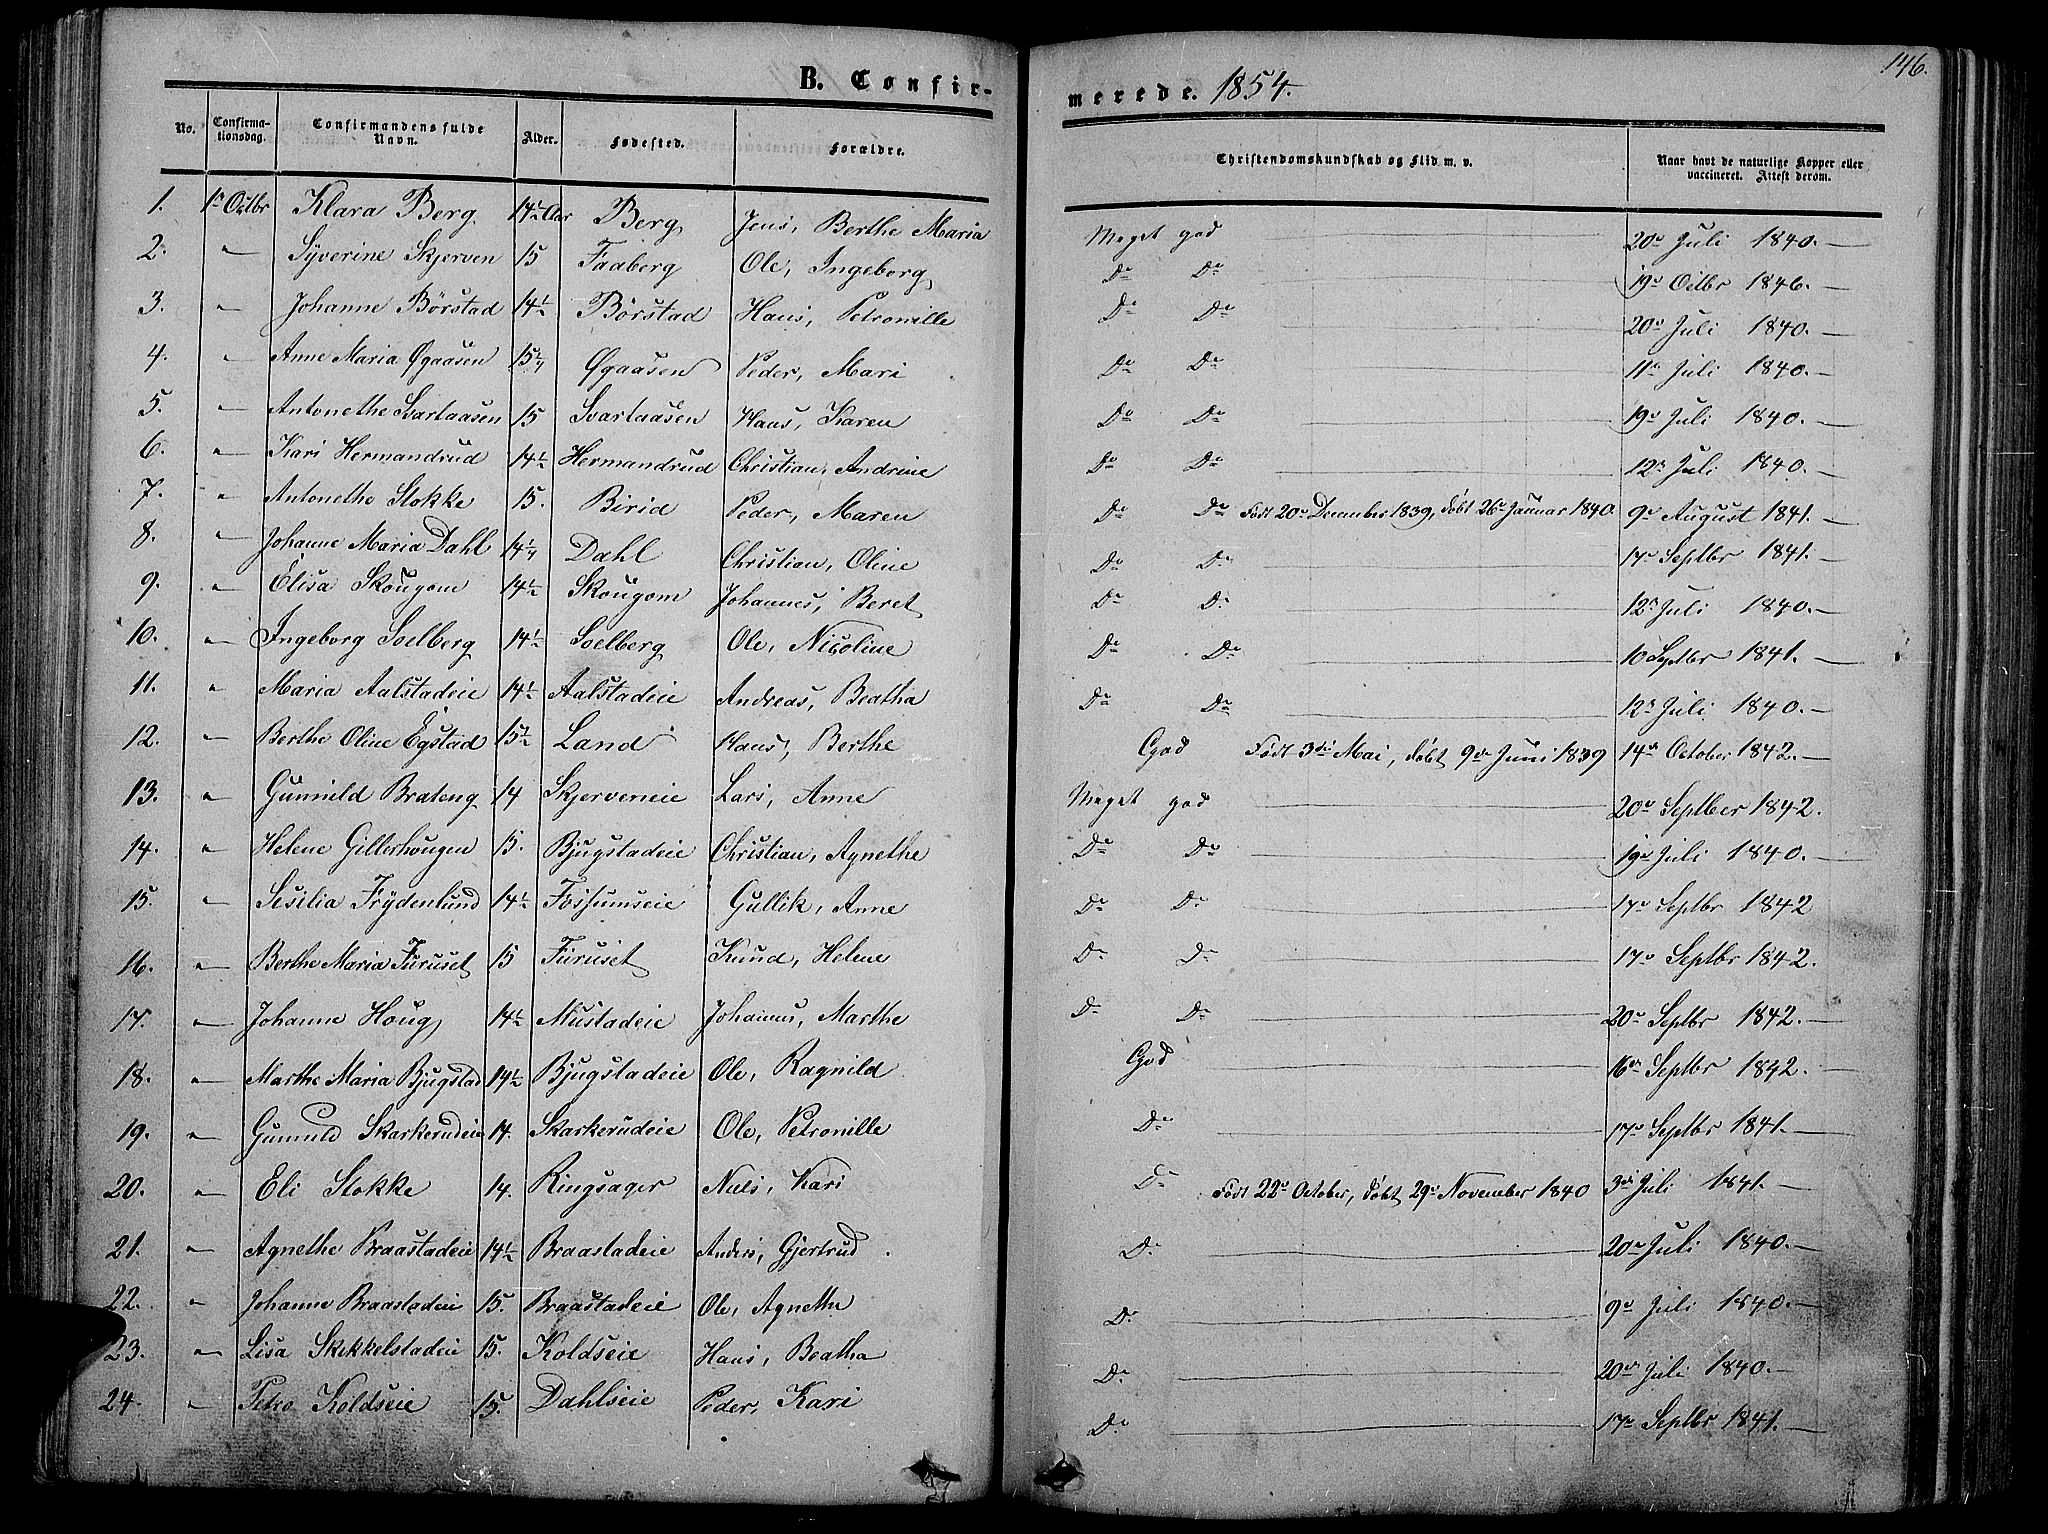 146.
B. Confirmerede. 1854.
No. Confirmationsdag. Confirmandens fulde Navn. Alder. Fødested. Forældre. Christendomskundskab og Flid m. v. Naar havt de naturlige Kopper eller vaccineret. Attest derom.
1. 1e Octbr Klara Berg 14½ Aar Berg Jens, Berthe Maria Meget god 20de Juli 1840. —
2. " Syverine Skjerven 15 Faaberg Ole, Ingeborg Do Do 19de Octbr 1846. —
3. " Johanne Börstad 14½ Börstad Hans, Petronille Do Do 20de Juli 1840. —
4. " Anne Maria Øgaasen 15 Øgaasen Peder, Mari Do Do 11te Juli 1840. —
5. " Antonethe Svartaasen 15 Svartaasen Hans, Karen Do Do 19de Juli 1840. —
6. " Kari Hermandrud 14½ Hermandrud Christian, Andrine Do Do 12te Juli 1840. —
7. " Antonethe Stokke 15. Birid Peder, Maren Do Do Født 20de December 1839, døbt 26de Januar 1840. 9de August 1841. —
8. " Johanne Maria Dahl 14¼ Dahl Christian, Oline Do Do 17de Septbr 1841. —
9. " Elisa Skougom 14½ Skougom Johannes, Beret Do Do 12te Juli 1840. —
10. " Ingeborg Soelberg 14½ Soelberg Ole, Nicoline Do Do 10 Septbr 1841. —
11. " Maria Aalstadeie 14½ Aalstadeie Andreas, Beatha Do Do 12te Juli 1840. —
12. " Berthe Oline Egstad 15½ Land Hans, Berthe God Født 3die Mai, døbt 9de Juni 1839 14de October 1842. —
13. " Gunnild Brateng 14 Skjerveneie Lars, Anne Meget god 20de Septber 1842.
14. " Helene Gillerhougen 15. Bjugstadeie Christian, Agnethe Do Do 19de Juli 1840. —
15. " Sesilia Frydenlund 14½ Fossumseie Gullik, Anne Do Do 17de Septbr 1842
16. " Berthe Maria Furuset 15 Furuset Knud, Helene Do Do 17de Septbr 1842.
17. " Johanne Houg 14½ Mustadeie Johannes, Marthe Do Do 20de Septbr 1842. —
18. " Marthe Maria Bjugstad 14½ Bjugstadeie Ole, Ragnild God 16de Septbr 1842. —
19. " Gunnild Skarkerudeie 14. Skarkerudeie Ole, Petronille Do 17de Septbr 1841. —
20. " Eli Stokke 14. Ringsager Niels, Kari Do Født 22de October, døbt 29de November 1840 3die Juli 1841. —
21. " Agnethe Braastadeie 14½ Braastadeie Anders, Gjertrud Do 20de Juli 1840. —
22. " Johanne Braastadeie 15. Braastadeie Ole, Agnethe Do 9de Juli 1840. —
23. " Lisa Skikkelstadeie 15. Koldseie Hans, Beatha Do 20de Juli 1840. —
24. " Petra Koldseie 15. Dahlseie Peder, Kari Do 17de Septbr 1841. —